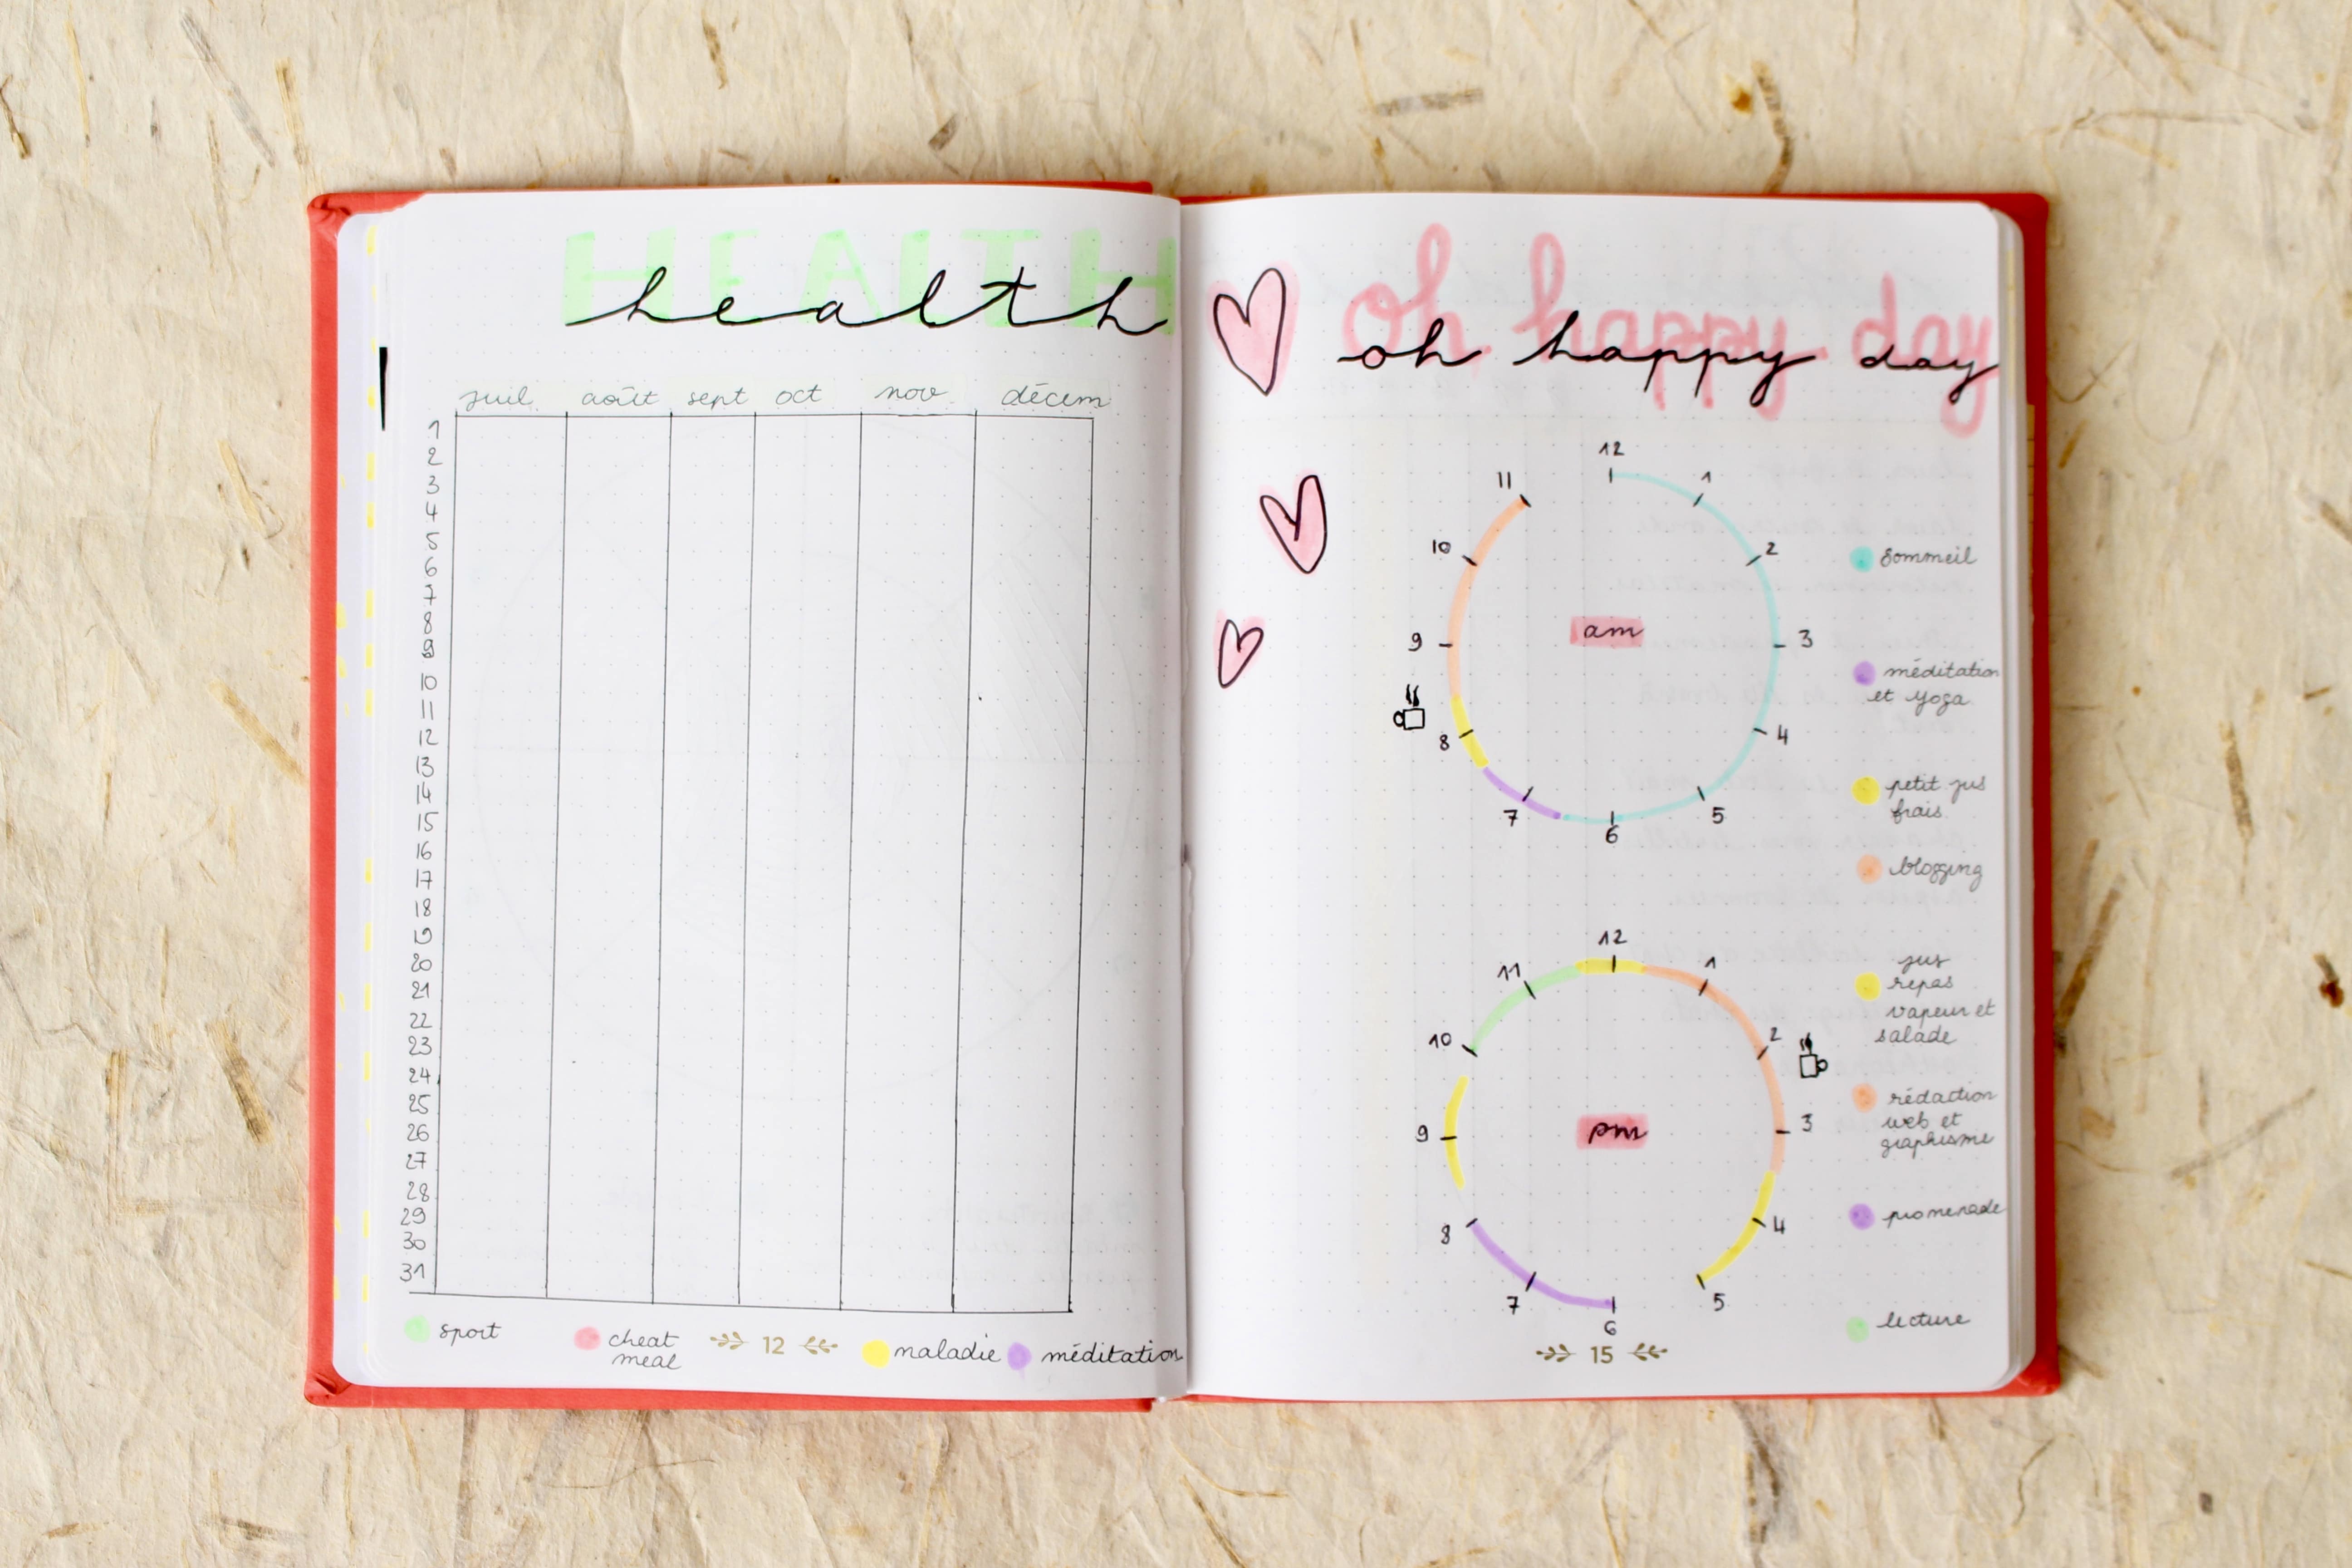 HEALTH
health
juil. août sept oct nov. décem
1
2
3
4
5
6
7
8
9
10
11
12
13
14
15
16
17
18
19
20
21
22
23
24
25
26
27
28
29
30
31
sport
cheat
meal
12
maladie
méditation
oh happy day
oh happy day
12
11 1
10 2
am
9 3
8 4
7 5
6
sommeil
méditation
et yoga
petit jus
frais
blogging
12
11 1
10 2
pm
9 3
8 4
7 5
6
jus
repas
vapeur et
salade
rédaction
web et
graphisme
promenade
lecture
15